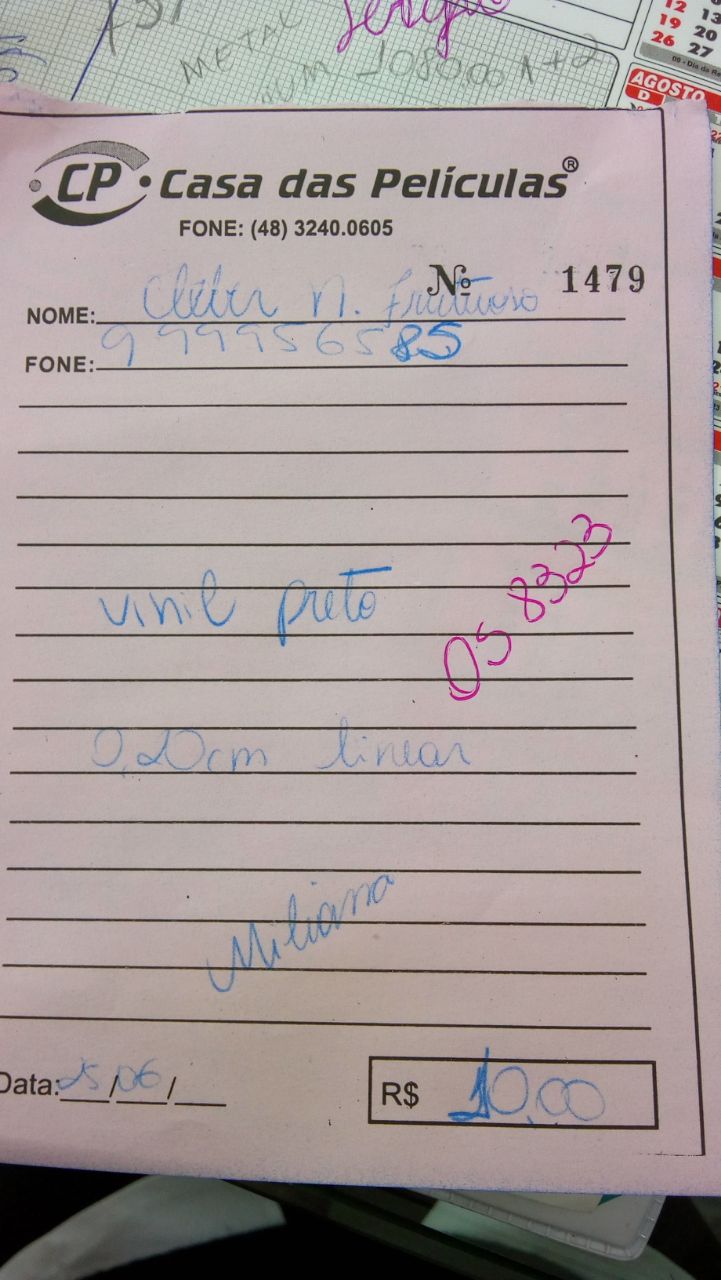 METAL
CP • Casa das Películas®
FONE: (48) 3240.0605
Nº 1479
NOME: Cléber N. Frutuoso
FONE: 9 99956585
vinil preto
05 8323
0,20cm linear
Miliana
Data: 25/06/___
R$ 10,00
12 13
19 20
26 27
AGOSTO
D